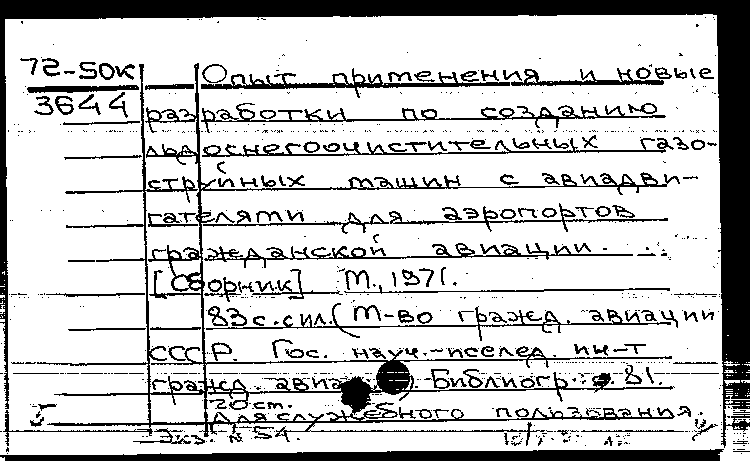 72-50к
3644
Опыт применения и новые
разработки по созданию
льдоснегоочистительных газо-
струйных машин с авиадви-
гателями для аэропортов
гражданской авиации.
[Сборник]. М., 1971.
83 с. с ил. (М-во гражд. авиации
СССР. Гос. науч.-исслед. ин-т
гражд. авиа Библиогр.: с. 81.
20 см.
Для служебного пользования.
Экз. № 54.